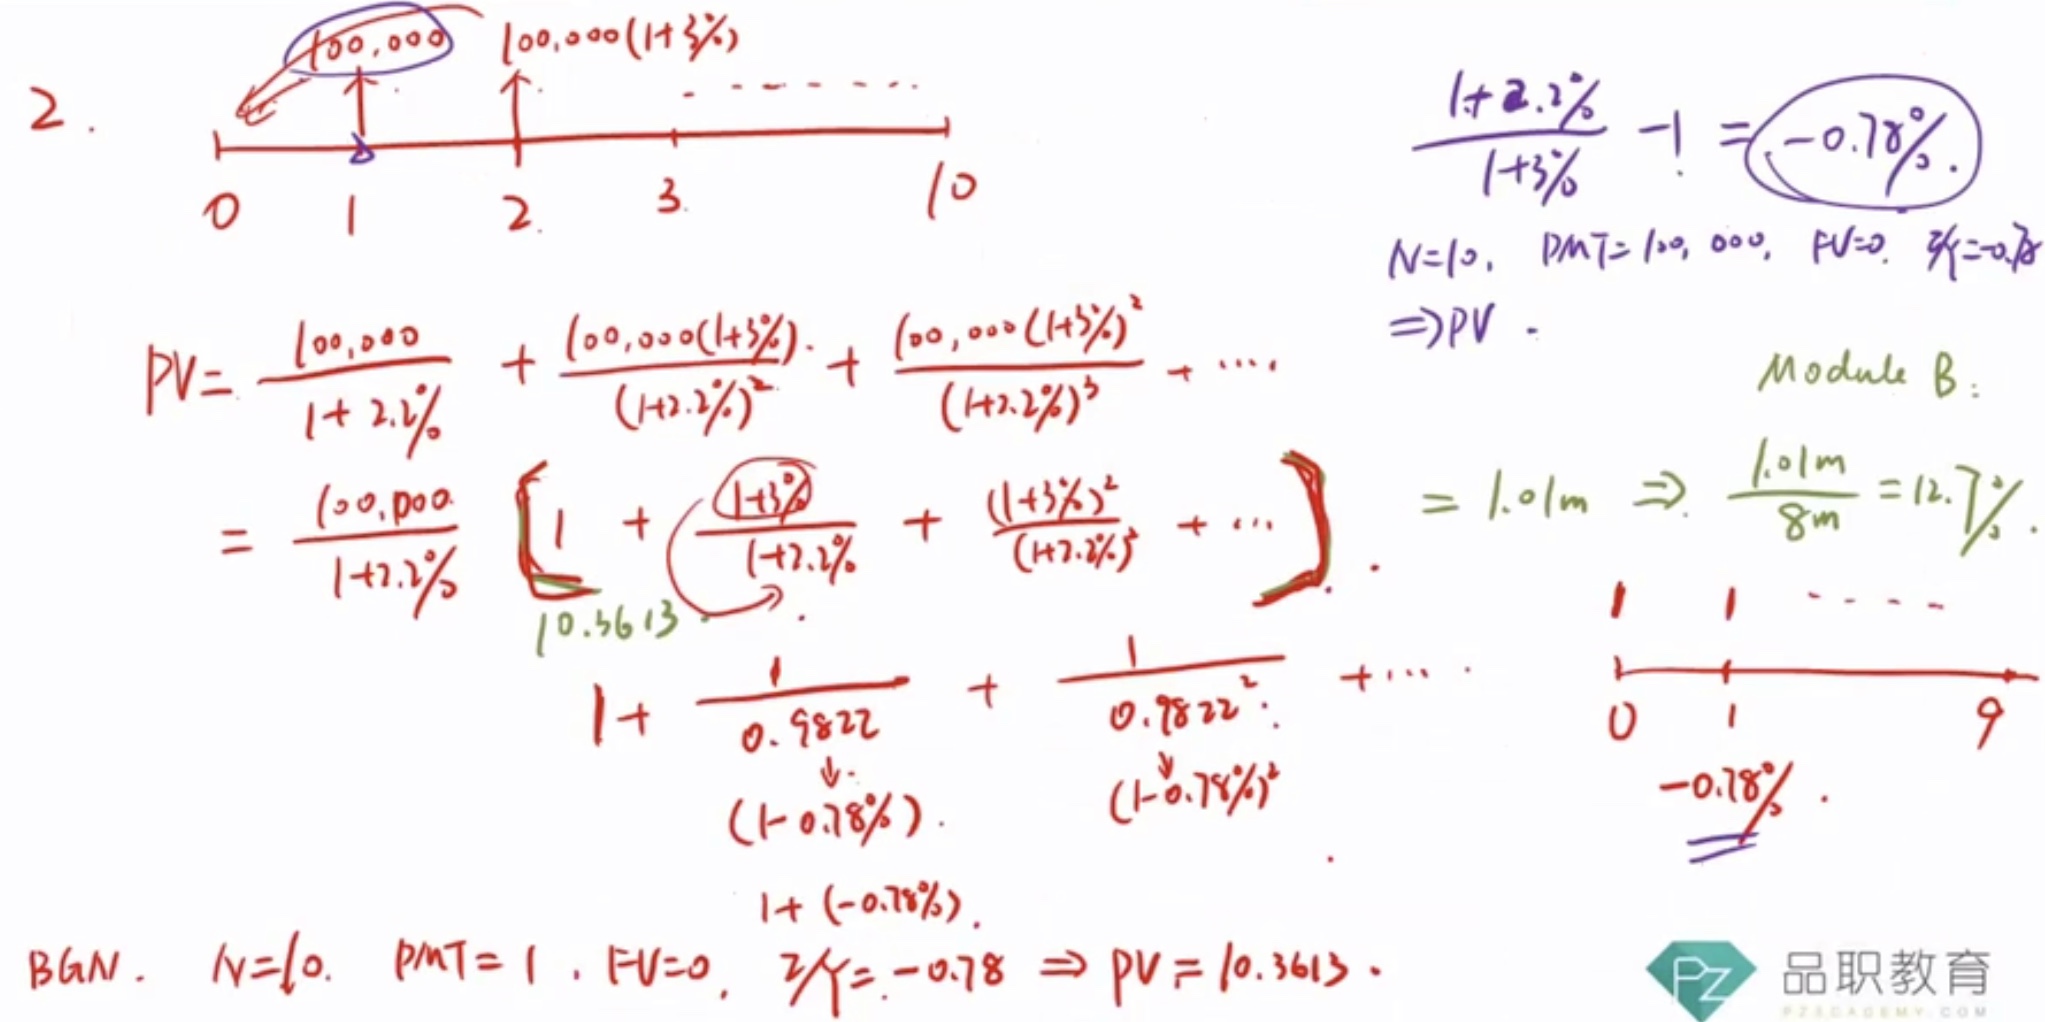 2.
100,000 100,000(1+3%)
0 1 2 3 10
PV= 100,000/(1+2.2%) + 100,000(1+3%)/(1+2.2%)² + 100,000(1+3%)²/(1+2.2%)³ + ....
= 100,000/(1+2.2%) [1 + (1+3%)/(1+2.2%) + (1+3%)²/(1+2.2%)² + ...]
10.3613
1+ 1/0.9822 + 1/0.9822² + ...
(1-0.78%) (1-0.78%)²
1+(-0.78%)
BGN. N=10. PMT=1. FV=0. I/Y=-0.78 ⇒ PV=10.3613.
(1+2.2%)/(1+3%) -1 = -0.78%.
N=10, PMT=100,000, FV=0. I/Y=-0.78
⇒PV.
Module B:
= 1.01m ⇒ 1.01m/8m = 12.7%.
1 1 ....
0 1 9
-0.78%.
PZ 品职教育
PZACADEMY.COM